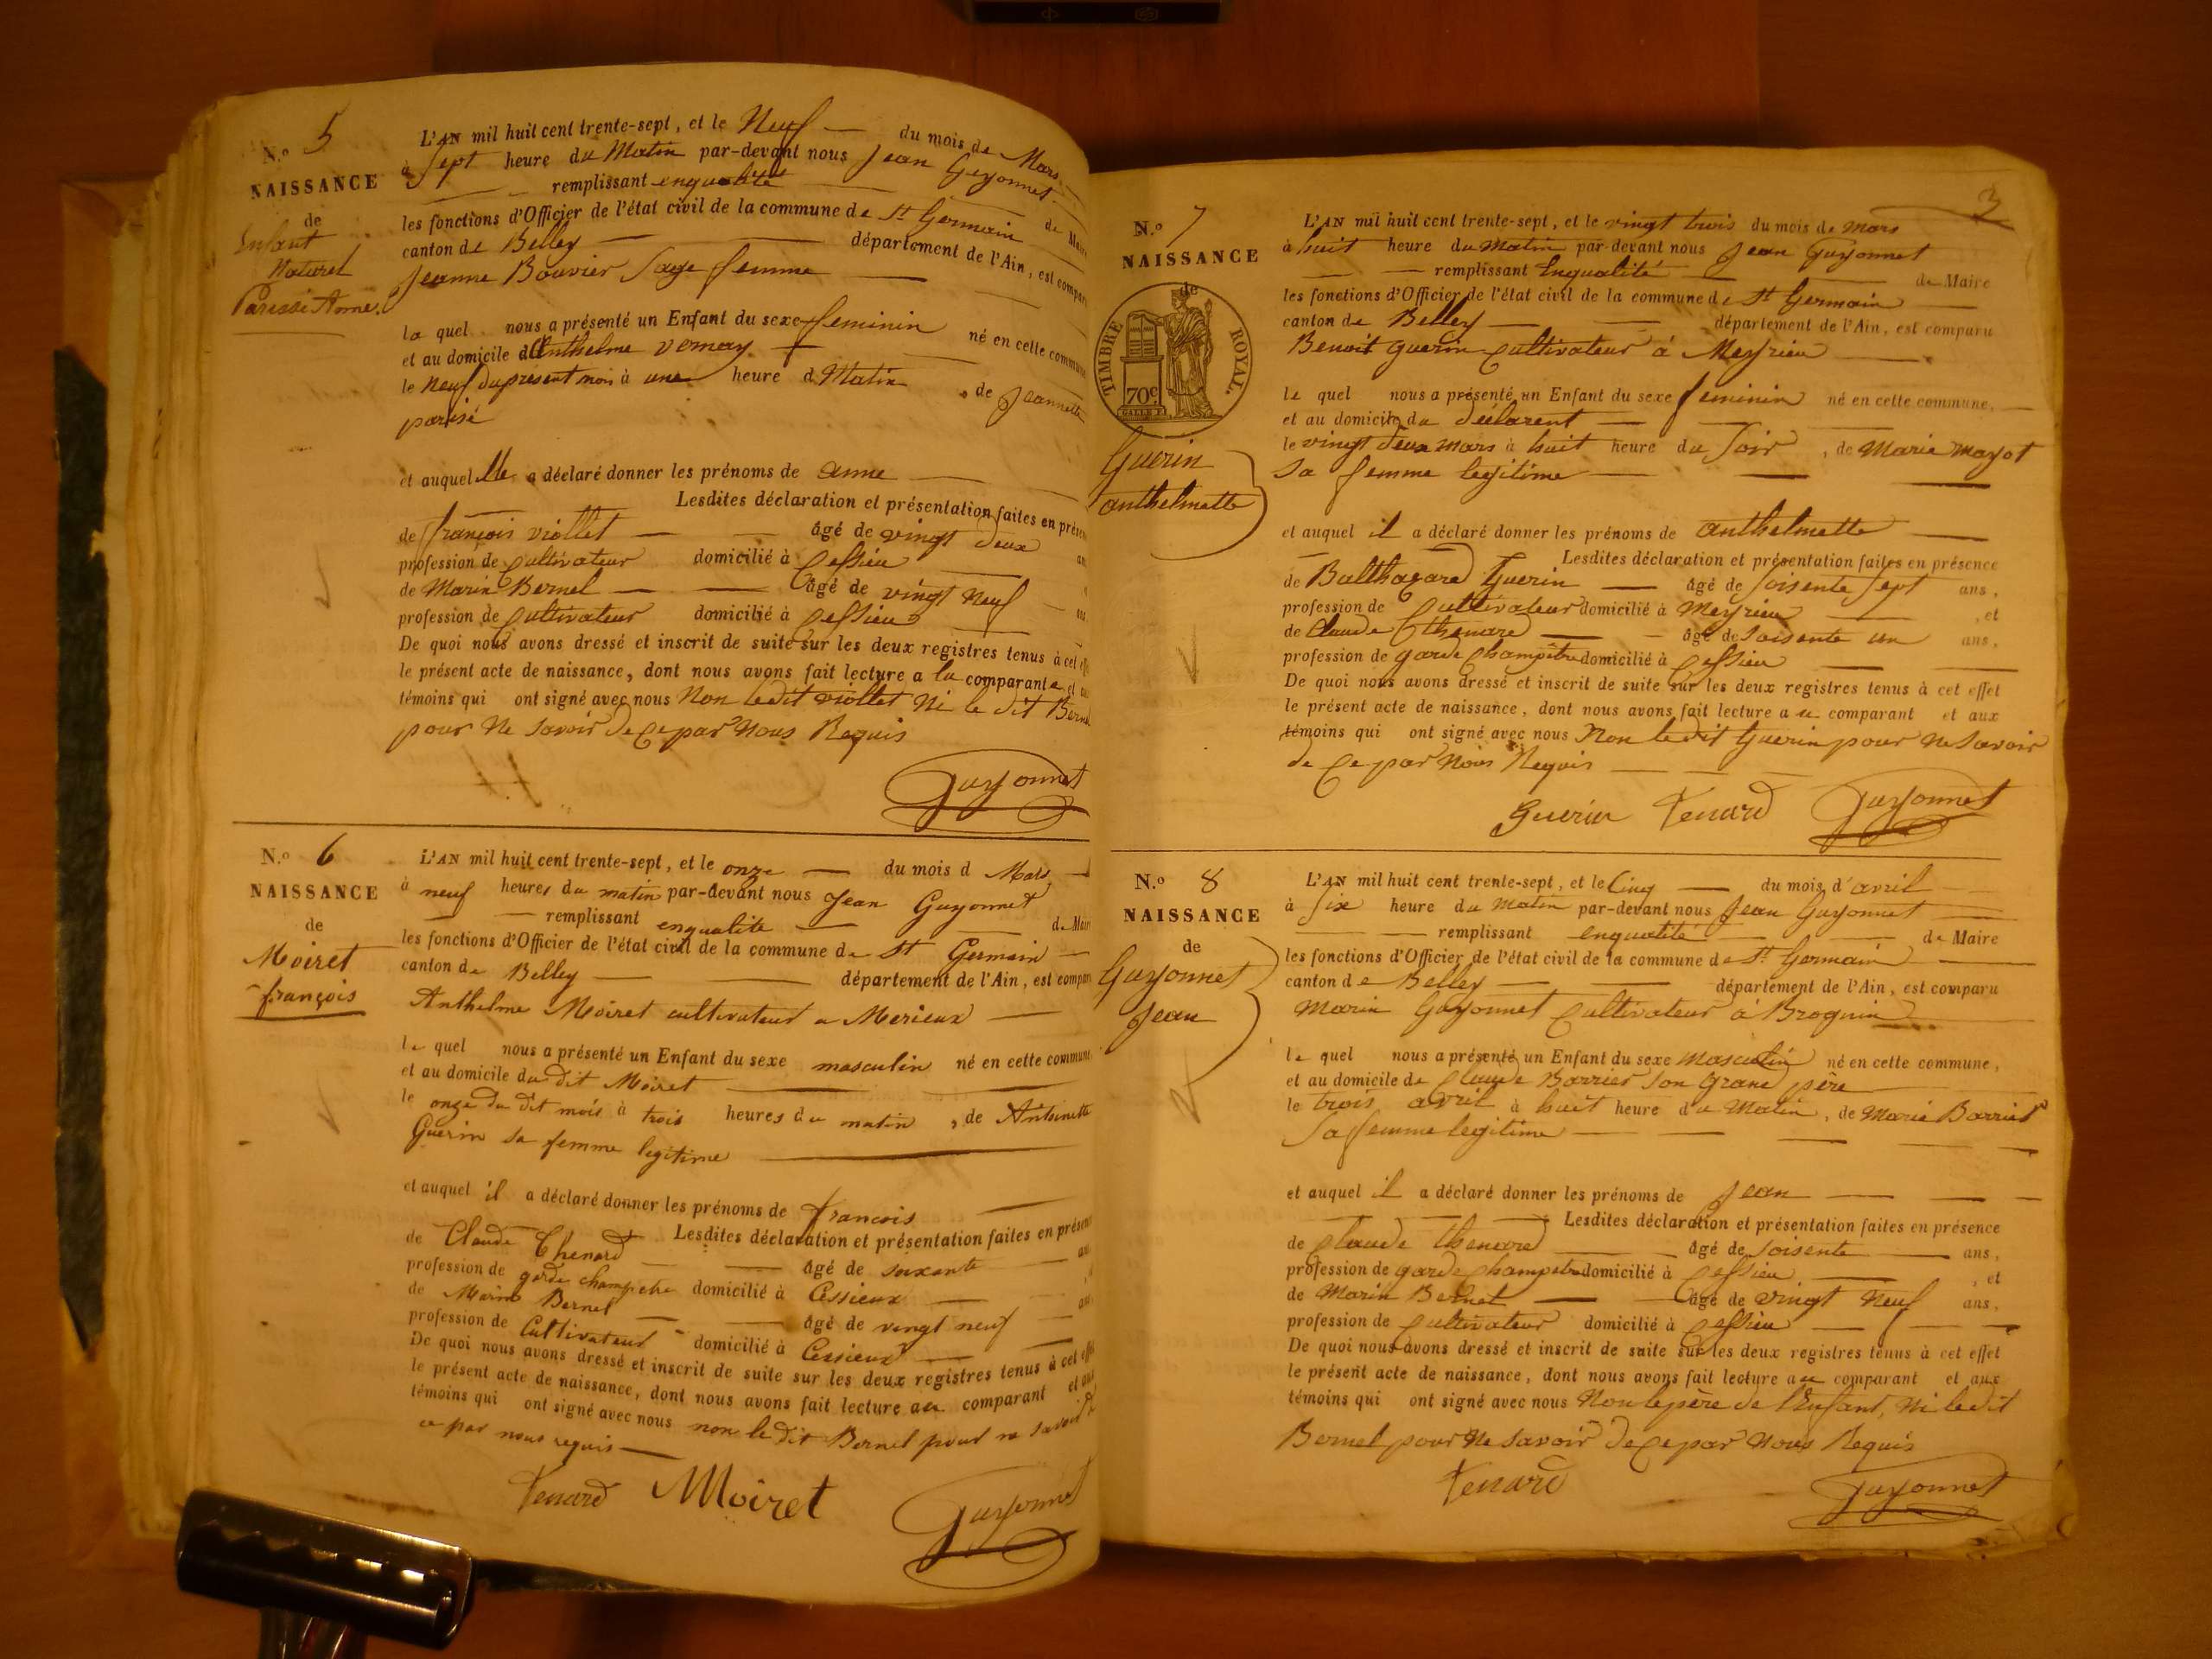 N.o 5
NAISSANCE
de
Enfant
Naturel
Parisse Anne.
L'AN mil huit cent trente-sept, et le Neuf du mois de Mars
à Sept heure du Matin par-devant nous Jean Guyonnet
remplissant enqualité de Maire
les fonctions d'Officier de l'état civil de la commune de St Germain
canton de Belley département de l'Ain, est compar
Jeanne Bouvier Sage femme
la quel nous a présenté un Enfant du sexe feminin né en cette commune
et au domicile d'Anthelme vernay
le Neuf du présent mois à une heure d Matin, de Jeannette
parisé
et auquellle a déclaré donner les prénoms de anne
Lesdites déclaration et présentation faites en présen
de françois viollet âgé de vingt deux an
profession de Cultivateur domicilié à Cessieu
de Marin Bernel âgé de vingt Neuf
profession de Cultivateur domicilié à Cessieu
De quoi nous avons dressé et inscrit de suite sur les deux registres tenus à cet effe
le présent acte de naissance, dont nous avons fait lecture a la comparante et
témoins qui ont signé avec nous Non ledit viollet Ni le dit Bernel
pour Ne savoir De Ce par Nous Requis
Guyonnet
N.o 6
NAISSANCE
de
Moiret
françois
L'AN mil huit cent trente-sept, et le onze du mois d Mars
à neuf heures du matin par-devant nous Jean Guyonnet
remplissant enqualite de Maire
les fonctions d'Officier de l'état civil de la commune de St Germain
canton de Belley département de l'Ain, est compar
Anthelme Moiret cultivateur a Merieux
le quel nous a présenté un Enfant du sexe masculin né en cette commune
et au domicile du dit Moiret
le onze du dit mois à trois heures du matin, de Antoinette
Guerin sa femme legitime
et auquel il a déclaré donner les prénoms de francois
Lesdites déclaration et présentation faites en présen
de Claude Chenard âgé de soixante an
profession de garde champetre domicilié à Cessieux
de Marin Bernel âgé de vingt neuf an
profession de Cultivateur domicilié à Cessieux
De quoi nous avons dressé et inscrit de suite sur les deux registres tenus à cet effe
le présent acte de naissance, dont nous avons fait lecture au comparant et aux
témoins qui ont signé avec nous non le dit Bernel pour ne savoir de
ce par nous requis
Tenard Moiret Guyonnet
3
N.o 7
NAISSANCE
de
TIMBRE ROYAL.
70c
Guerin
anthelmette
L'AN mil huit cent trente-sept, et le vingt trois du mois de Mars
à huit heure du Matin par-devant nous Jean Guyonnet
remplissant Enqualité de Maire
les fonctions d'Officier de l'état civil de la commune de St Germain
canton de Belley département de l'Ain, est comparu
Benoit guerin Cultivateur à Meyrieu
le quel nous a présenté un Enfant du sexe feminin né en cette commune,
et au domicile du déclarent
le vingt deux mars à huit heure du Soir, de Marie mayot
Sa femme legitime
et auquel il a déclaré donner les prénoms de anthelmette
Lesdites déclaration et présentation faites en présence
de Balthazard Guerin âgé de soisente sept ans,
profession de Cultivateur domicilié à Meyrieu, et
de Claude Chenard âgé de soisente un ans,
profession de garde Champêtre domicilié à Cessieu
De quoi nous avons dressé et inscrit de suite sur les deux registres tenus à cet effet
le présent acte de naissance, dont nous avons fait lecture a u comparant et aux
témoins qui ont signé avec nous Non le dit Guerin pour Ne savoir
de Ce par Nous Requis
Guerin Tenard Guyonnet
N.o 8
NAISSANCE
de
Guyonnet
Jean
L'AN mil huit cent trente-sept, et le Cinq du mois d'avril
à Six heure du Matin par-devant nous Jean Guyonnet
remplissant enqualité de Maire
les fonctions d'Officier de l'état civil de la commune de St Germain
canton de Belley département de l'Ain, est comparu
Marin Guyonnet Cultivateur à Brognin
le quel nous a présenté un Enfant du sexe Masculin né en cette commune,
et au domicile de Claude Barrier son grand père
le trois avril à huit heure du Matin, de Marie Barrier
Sa femme legitime
et auquel il a déclaré donner les prénoms de Jean
Lesdites déclaration et présentation faites en présence
de Claude thenard âgé de soisente ans,
profession de garde Champêtre domicilié à Cessieu, et
de Marin Bernel âgé de vingt Neuf ans,
profession de Cultivateur domicilié à Cessieu
De quoi nous avons dressé et inscrit de suite sur les deux registres tenus à cet effet
le présent acte de naissance, dont nous avons fait lecture au comparant et aux
témoins qui ont signé avec nous Non le père de l'Enfant, Ni le dit
Bernel pour Ne savoir De Ce par Nous Requis
Tenard Guyonnet